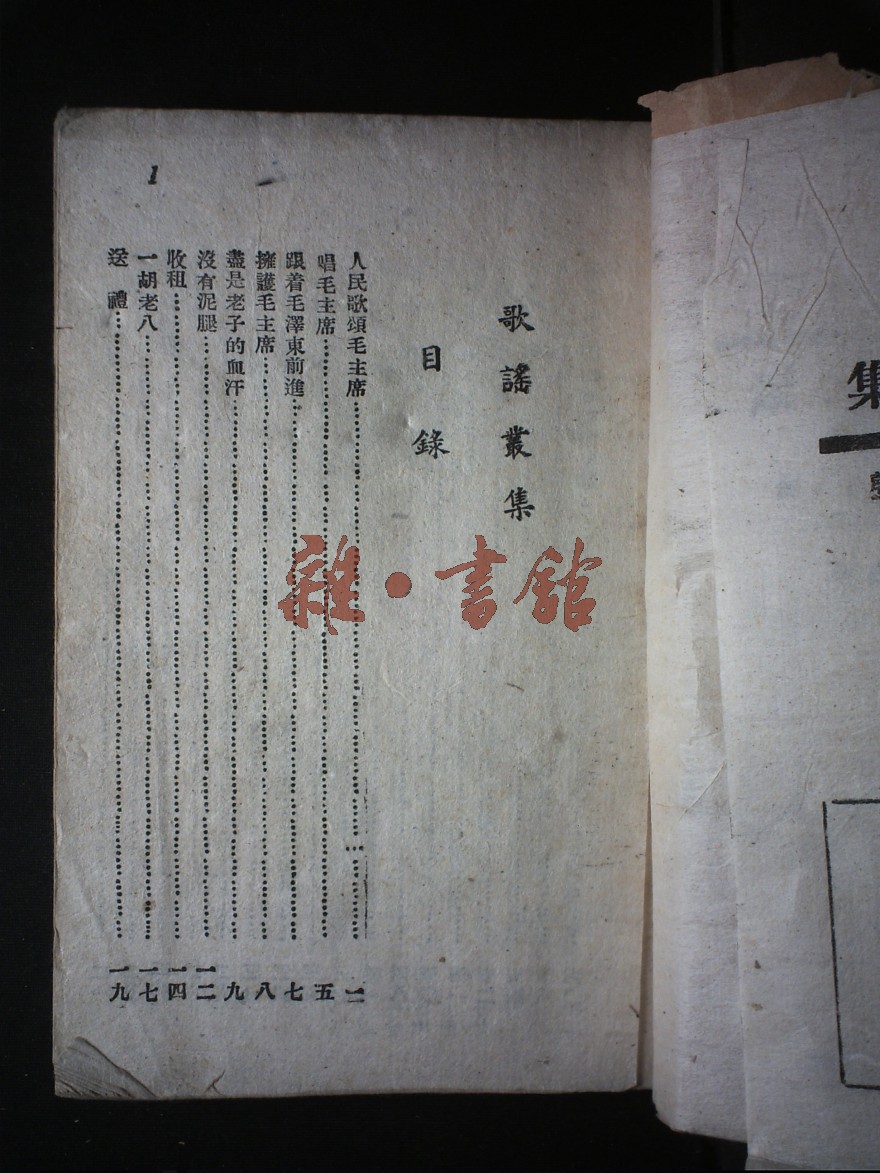 集
歌謠叢集
目錄
人民歌頌毛主席……一
唱毛主席……五
跟着毛澤東前進……七
擁護毛主席……八
盡是老子的血汗……九
沒有泥腿……一二
收租……一四
一胡老八……一七
送禮……一九
1
雜·書館